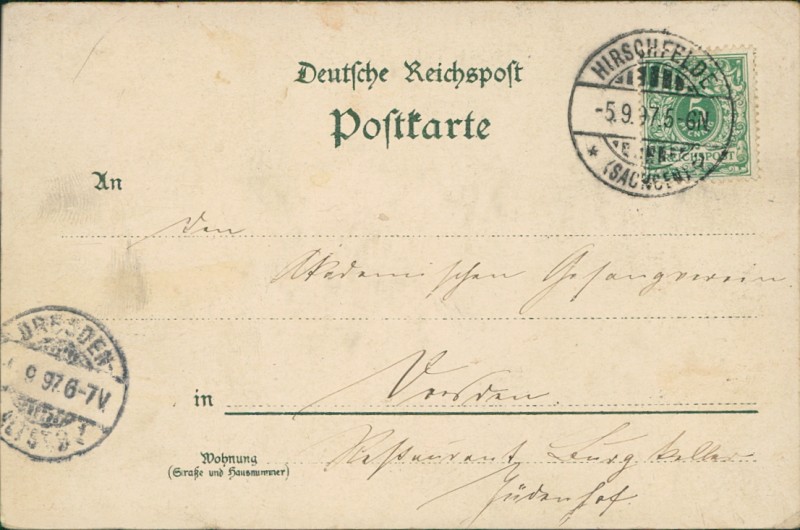 Deutsche Reichspost
Postkarte
HIRSCHFELDE
-5.9.97.5-6N.
* (SACHSEN)
5
REICHSPOST
An
Den
Akademischen Gesangverein
DRESDEN-
9 97.6-7V.
ALTST.
in Dresden.
Wohnung
(Straße und Hausnummer)
Restaurant Burgkeller
Jüdenhof.